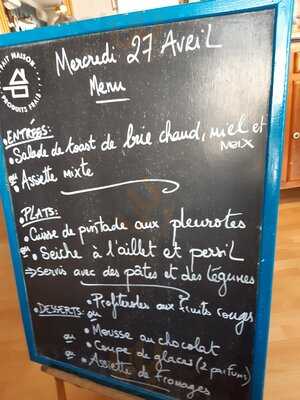 FAIT MAISON
PRODUITS FRAIS
Mercredi 27 AVRiL
Menu
• ENTRÉES:
• Salade de toast de brie chaud, miel et
noix
ou
• Assiette mixte
• PLATS:
• Cuisse de pintade aux pleurotes
ou
• Seiche à l'aillet et persil
⇒ servis avec des pâtes et des légumes
• DESSERTS: • Profiteroles aux fruits rouges
ou
• Mousse au chocolat
ou • Coupe de glaces (2 parfums)
ou • Assiette de fromages